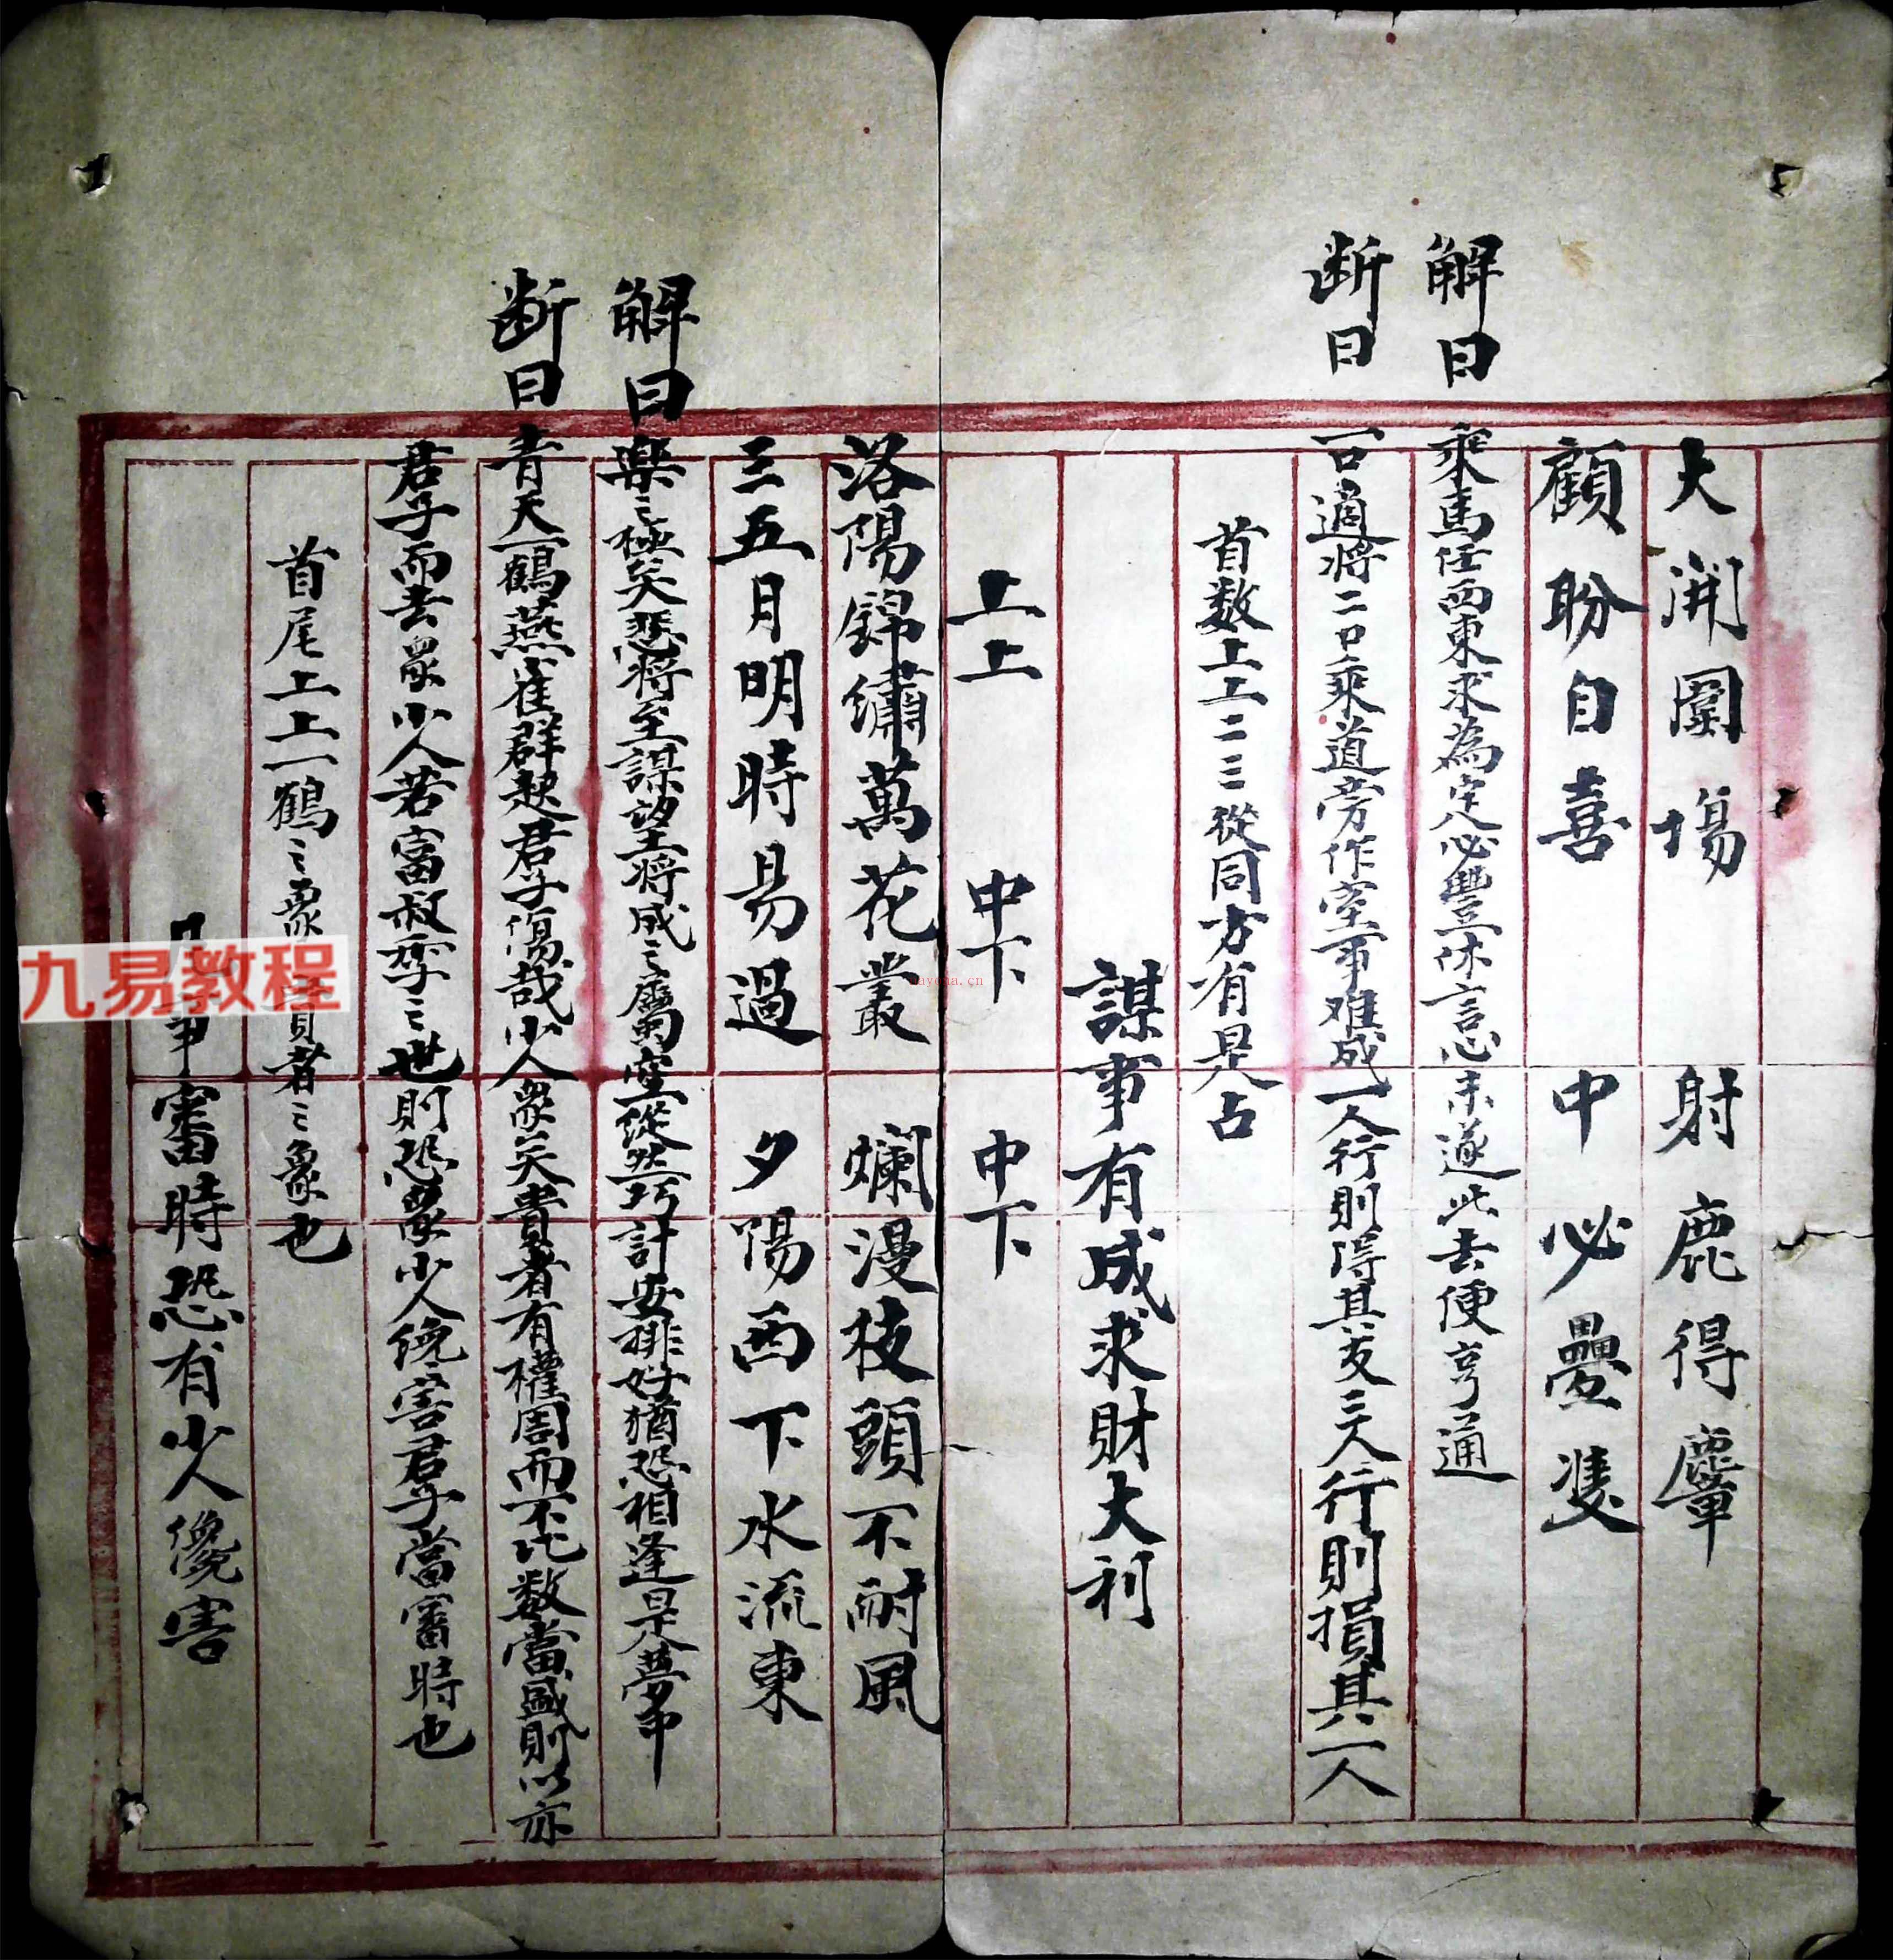 大開圍場 射鹿得麞
顧盼自喜 中必疊雙
解曰 乘馬任西東求為定必豐休言心未遂此去便亨通
断曰 一口適將二口乘道旁作室事难成一人行則得其友三人行則損其一人
首数上上二三從同方有是占
謀事有成求財大利
上上 中下 中下
洛陽錦繡萬花叢 爛漫枝頭不耐風
三五月明時易過 夕陽西下水流東
解曰 樂之極矣悲將至謀望將成之屬空從然巧計安排好猶恐相逢是夢中
断曰 青天一鶴燕雀群起君子傷哉小人衆矣貴者有權周而不比数當盛則以亦
君子而去衆小人若富叔季之世則恐衆小人儳害君子當審時也
首尾上上一鶴之象貴者之象也
凡事審時恐有小人儳害
九易教程
nayona.cn